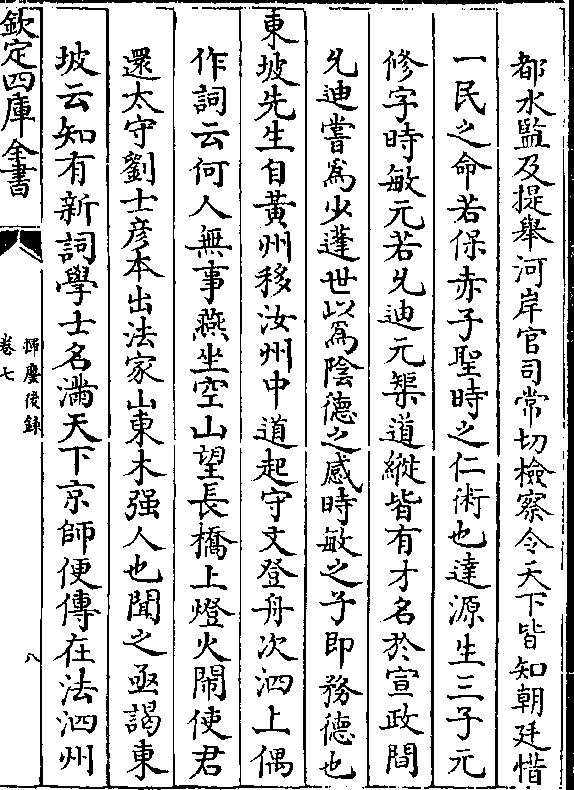 都水監及提舉河岸官司常切檢察令天下皆知朝廷惜
一民之命若保赤子聖時之仁術也達源生三子元
修字時敏元若允迪元榘道縱皆有才名於宣政間
允迪嘗爲少蓬世以爲陰德之感時敏之子即務德也
東坡先生自黃州移汝州中道起守文登舟次泗上偶
作詞云何人無事燕坐空山望長橋上燈火鬧使君
還太守劉士彦本出法家山東木强人也聞之亟謁東
坡云知有新詞學士名滿天下京師便傳在法泗州
欽定四庫全書
揮麈後錄
卷七
八